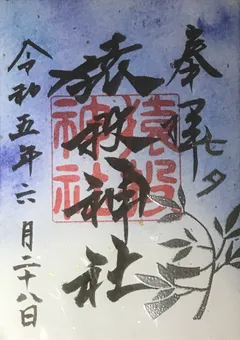 奉拝
七夕
猿投神社
猿投神社
令和五年六月二十八日